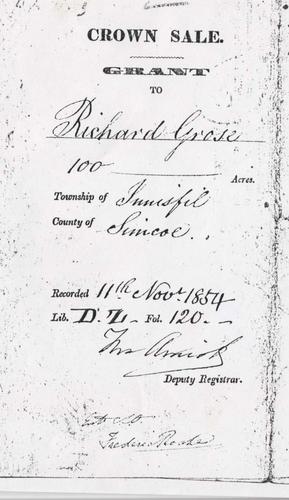 CROWN SALE.
GRANT
TO
Richard Grose
100 Acres.
Township of Innisfil
County of Simcoe.
Recorded 11th Novr. 1854
Lib. D.Z. Fol. 120.
Deputy Registrar.